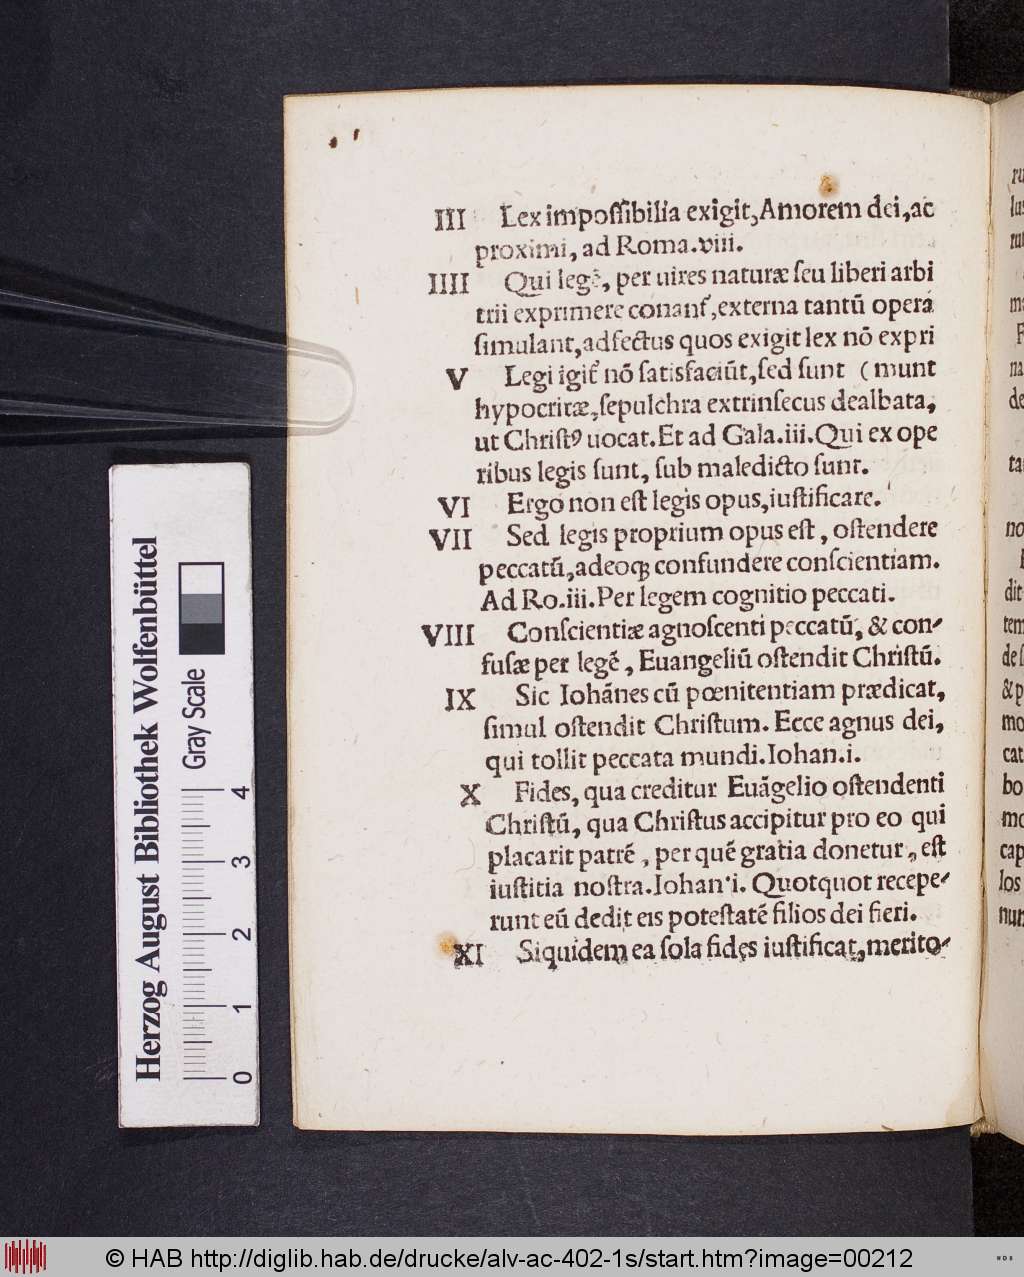 III Lex impoſſibilia exigit, Amorem dei, ac
proximi, ad Roma.viii.
IIII Qui legē, per uires naturæ ſeu liberi arbi
trii exprimere conant᷑, externa tantū opera
ſimulant, adfectus quos exigit lex nō expri
V Legi igit᷑ nō ſatisfaciūt, ſed ſunt (munt
hypocritæ, ſepulchra extrinſecus dealbata,
ut Chriſtꝰ uocat. Et ad Gala.iii. Qui ex ope
ribus legis ſunt, ſub maledicto ſunt.
VI Ergo non eſt legis opus, iuſtificare.
VII Sed legis proprium opus eſt, oſtendere
peccatū, adeoqꝫ confundere conſcientiam.
Ad Ro.iii. Per legem cognitio peccati.
VIII Conſcientiæ agnoſcenti peccatū, & con-
fuſæ per legē, Euangeliū oſtendit Chriſtū.
IX Sic Iohānes cū pœnitentiam prædicat,
ſimul oſtendit Chriſtum. Ecce agnus dei,
qui tollit peccata mundi. Iohan.i.
X Fides, qua creditur Euāgelio oſtendenti
Chriſtū, qua Chriſtus accipitur pro eo qui
placarit patrē, per quē gratia donetur, eſt
iuſtitia noſtra. Iohan.i. Quotquot recepe-
runt eū dedit eis poteſtatē filios dei fieri.
XI Siquidem ea ſola fides iuſtificat, merito-
Herzog August Bibliothek Wolfenbüttel
Gray Scale
0 1 2 3 4
© HAB http://diglib.hab.de/drucke/alv-ac-402-1s/start.htm?image=00212